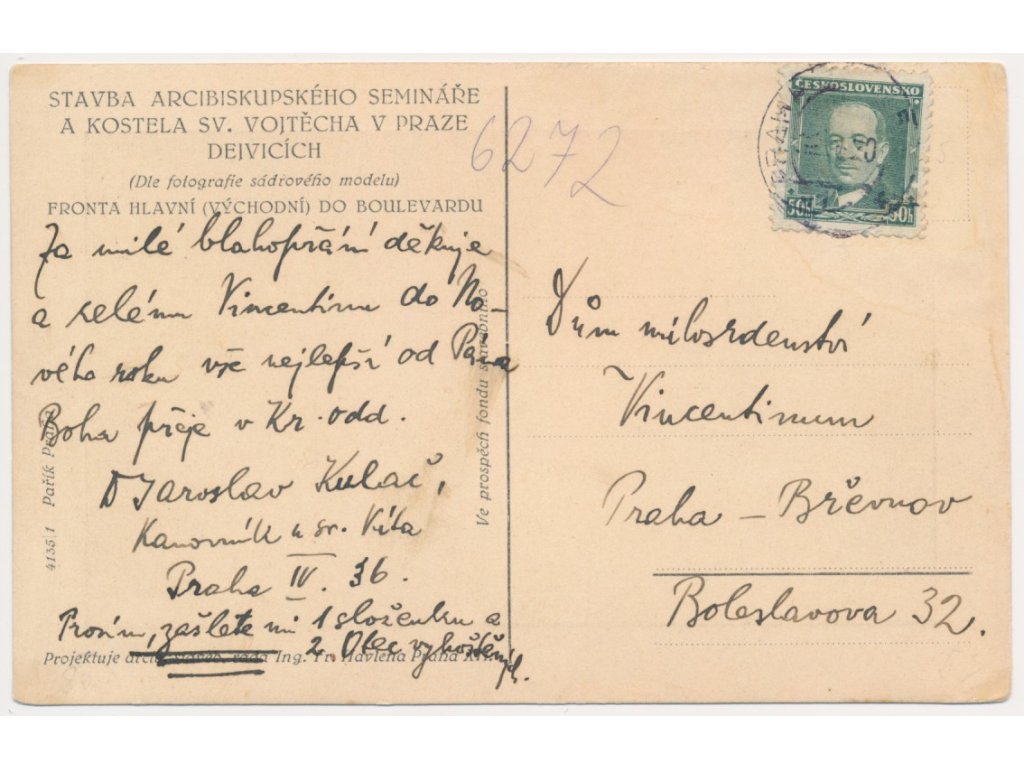 STAVBA ARCIBISKUPSKÉHO SEMINÁŘE
A KOSTELA SV. VOJTĚCHA V PRAZE
DEJVICÍCH
(Dle fotografie sádrového modelu)
FRONTA HLAVNÍ (VÝCHODNÍ) DO BOULEVARDU
Za milé blahopřání děkuje
a celému Vincentinu do No-
vého roku vše nejlepší od Pána
Boha přeje v Kr. odd.
D Jaroslav Kulač,
Kanovník u sv. Víta
Praha IV. 36.
Prosím, zašlete mi 1 složenku a
2. Olec
Projektuje Ing. Fr. Havlena Praha
4135/1 Pařík
Ve prospěch fondu stavebního
6272
ČESKOSLOVENSKO
50h 50h
PRAHA
Dům milosrdenství
Vincentinum
Praha - Břevnov
Boleslavova 32.